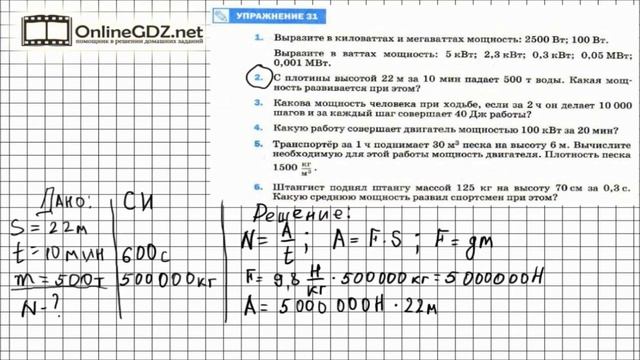 OnlineGDZ.net
помощник в решении домашних заданий
УПРАЖНЕНИЕ 31
1. Выразите в киловаттах и мегаваттах мощность: 2500 Вт; 100 Вт.
Выразите в ваттах мощность: 5 кВт; 2,3 кВт; 0,3 кВт; 0,05 МВт;
0,001 МВт.
2. С плотины высотой 22 м за 10 мин падает 500 т воды. Какая мощ-
ность развивается при этом?
3. Какова мощность человека при ходьбе, если за 2 ч он делает 10 000
шагов и за каждый шаг совершает 40 Дж работы?
4. Какую работу совершает двигатель мощностью 100 кВт за 20 мин?
5. Транспортёр за 1 ч поднимает 30 м³ песка на высоту 6 м. Вычислите
необходимую для этой работы мощность двигателя. Плотность песка
1500 кг/м³.
6. Штангист поднял штангу массой 125 кг на высоту 70 см за 0,3 с.
Какую среднюю мощность развил спортсмен при этом?
Дано: СИ
S = 22м
t = 10 мин 600с
m = 500т 500 000 кг
N - ?
Решение:
N = A/t ; A = F · S ; F = gm
F = 9,8 Н/кг · 500000 кг = 5 000 000 Н
A = 5 000 000 Н · 22 м